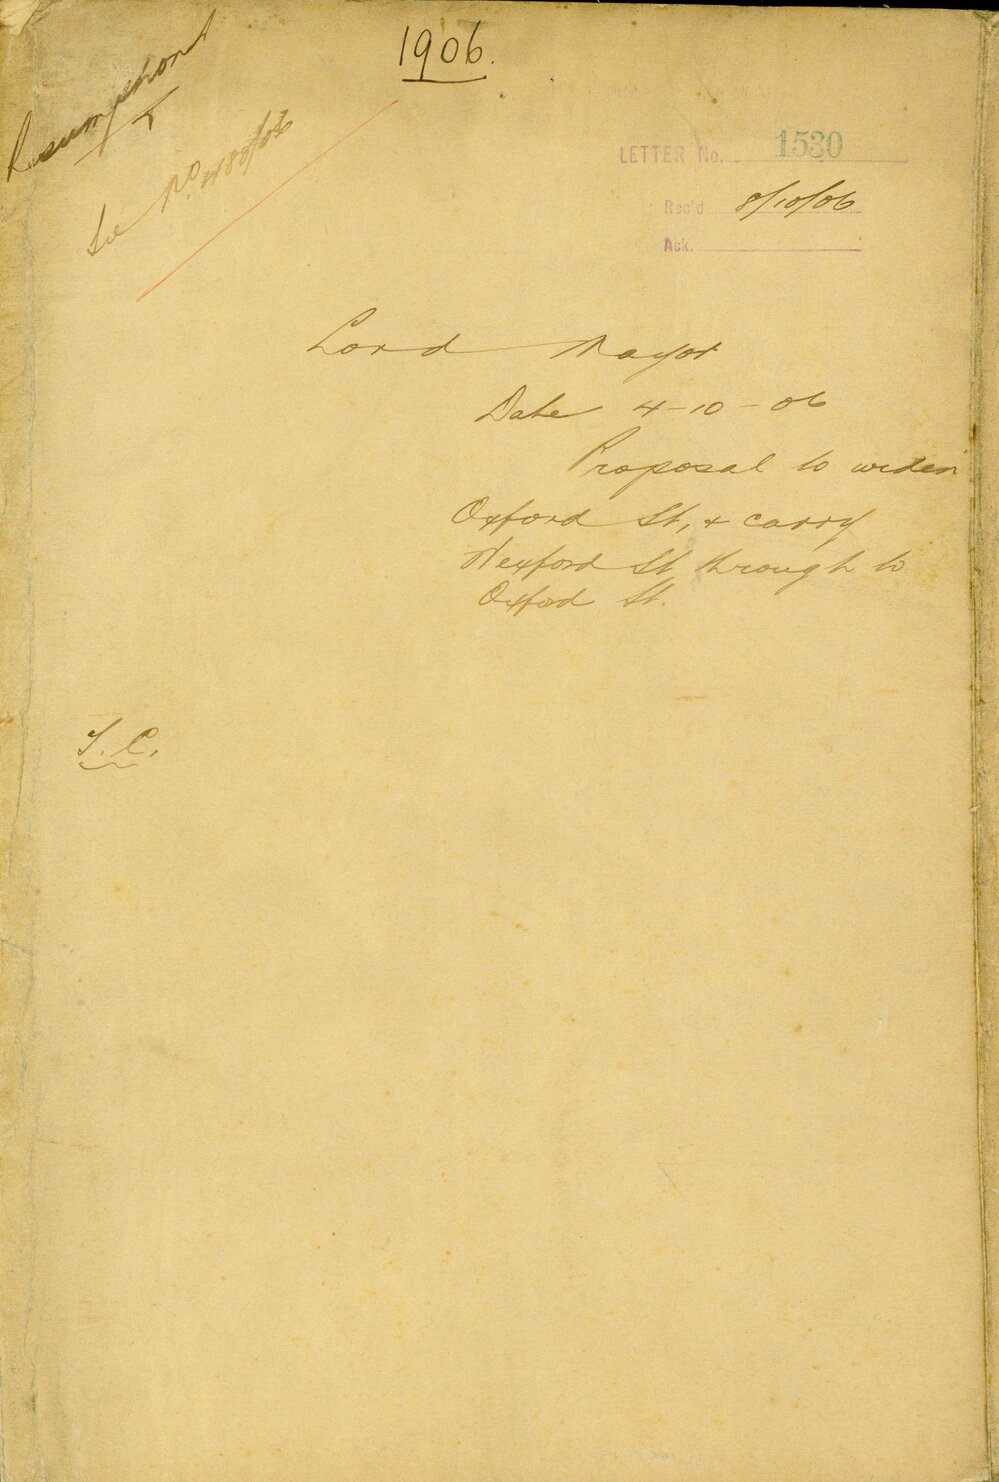 1906.
Resumptions
See No 480/06
LETTER No. 1530
Rec'd 8/10/06
Ack.
Lord Mayor
Date 4-10-06
Proposal to widen
Oxford St, & carry
Wexford St through to
Oxford St.
T.C.